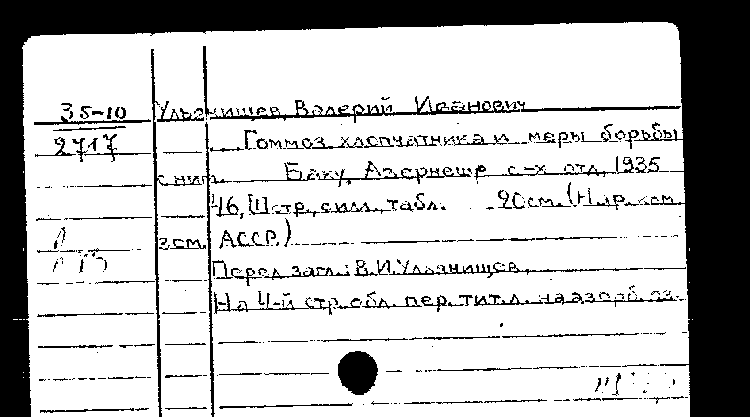 35-10 Ульянищев, Валерий Иванович
2717 Гоммоз хлопчатника и меры борьбы
с ним. Баку, Азернешр с-х отд, 1935
46, [1] стр., с илл., табл. 20 см. (Нар. ком.
зем. АССР.)
Перед загл.: В.И. Ульянищев.
На 4-й стр. обл. пер. тит. л. на азерб. яз.